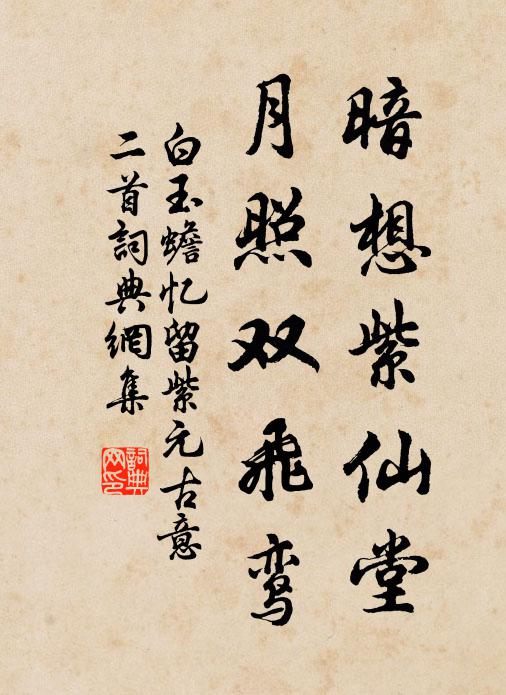 暗想紫仙堂
月照双飞鸾
白玉蟾忆留紫元古意
二首詞典網集
詞典網印